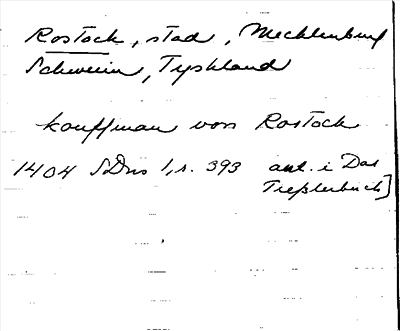 Rostock, stad, Mecklenburg
Schwerin, Tyskland
kouffman von Rostock
1404 SDns 1, s. 393 ant. i Das
Treßlerbuch]